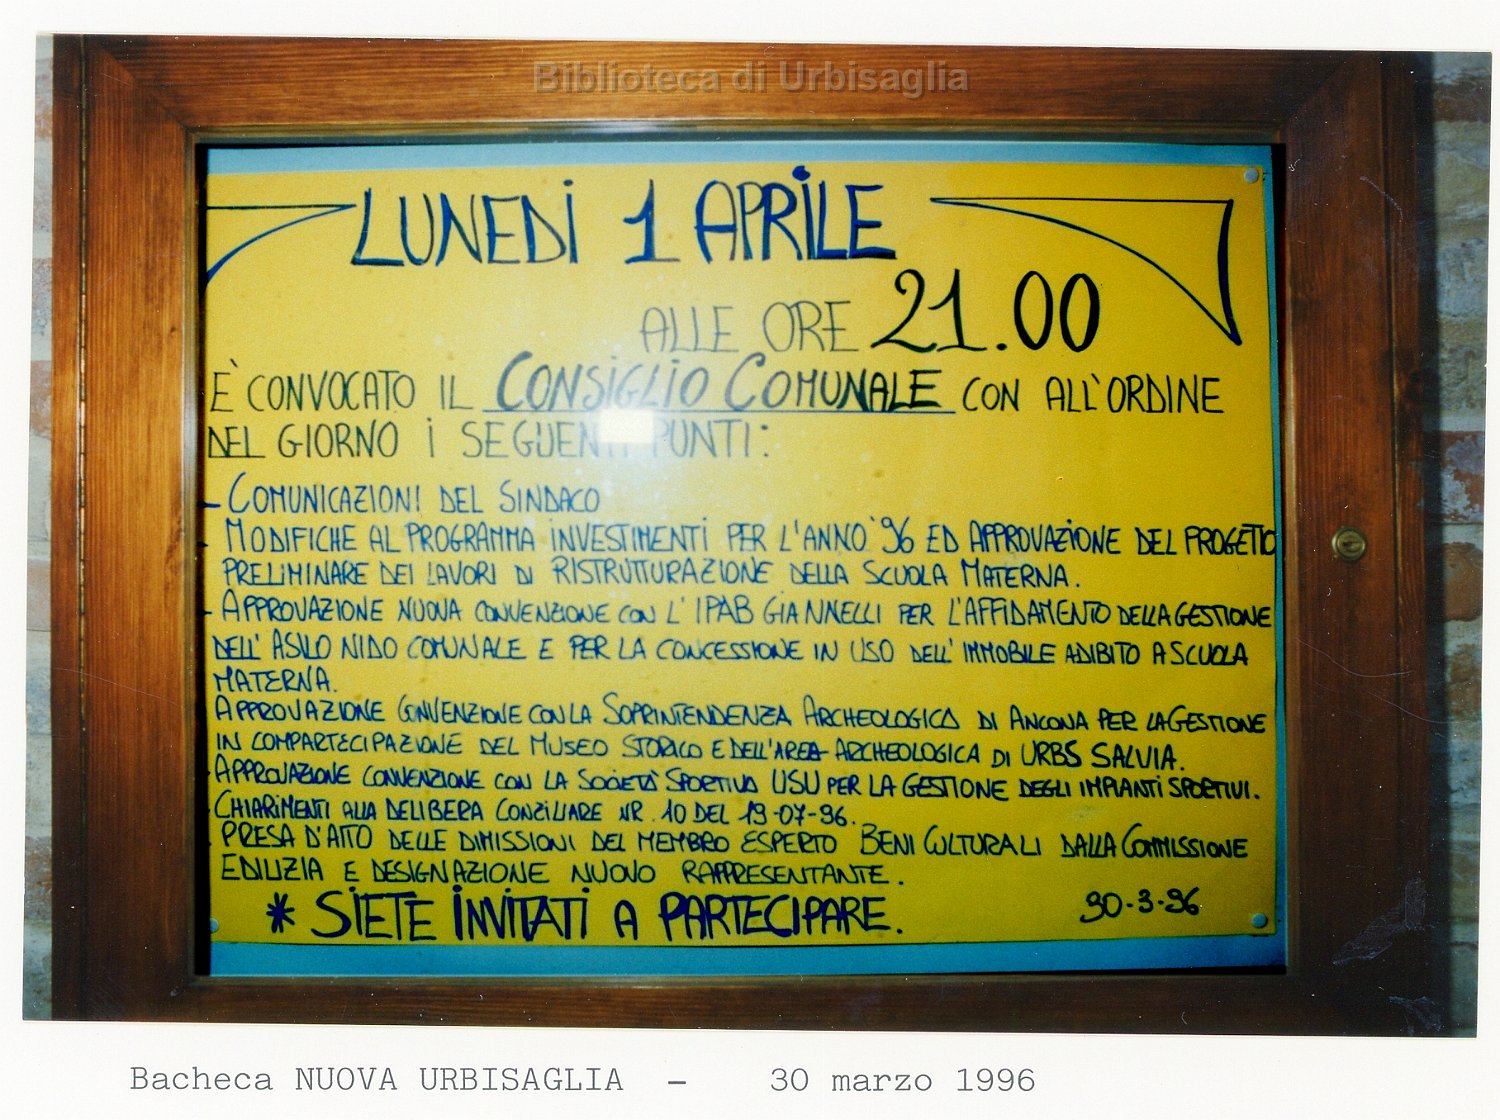 Biblioteca di Urbisaglia
LUNEDI 1 APRILE
ALLE ORE 21.00
È CONVOCATO IL CONSIGLIO COMUNALE CON ALL'ORDINE
DEL GIORNO I SEGUENTI PUNTI:
- COMUNICAZIONI DEL SINDACO
- MODIFICHE AL PROGRAMMA INVESTIMENTI PER L'ANNO '96 ED APPROVAZIONE DEL PROGETTO
PRELIMINARE DEI LAVORI DI RISTRUTTURAZIONE DELLA SCUOLA MATERNA.
- APPROVAZIONE NUOVA CONVENZIONE CON L'IPAB GIANNELLI PER L'AFFIDAMENTO DELLA GESTIONE
DELL'ASILO NIDO COMUNALE E PER LA CONCESSIONE IN USO DELL'IMMOBILE ADIBITO A SCUOLA
MATERNA.
APPROVAZIONE CONVENZIONE CON LA SOPRINTENDENZA ARCHEOLOGICA DI ANCONA PER LA GESTIONE
IN COMPARTECIPAZIONE DEL MUSEO STORICO E DELL'AREA ARCHEOLOGICA DI URBS SALVIA.
- APPROVAZIONE CONVENZIONE CON LA SOCIETÀ SPORTIVA USU PER LA GESTIONE DEGLI IMPIANTI SPORTIVI.
- CHIARIMENTI ALLA DELIBERA CONZILIARE NR. 10 DEL 19-07-96.
- PRESA D'ATTO DELLE DIMISSIONI DEL MEMBRO ESPERTO BENI CULTURALI DALLA COMMISSIONE
EDILIZIA E DESIGNAZIONE NUOVO RAPPRESENTANTE.
* SIETE INVITATI A PARTECIPARE.
30-3-96
Bacheca NUOVA URBISAGLIA - 30 marzo 1996